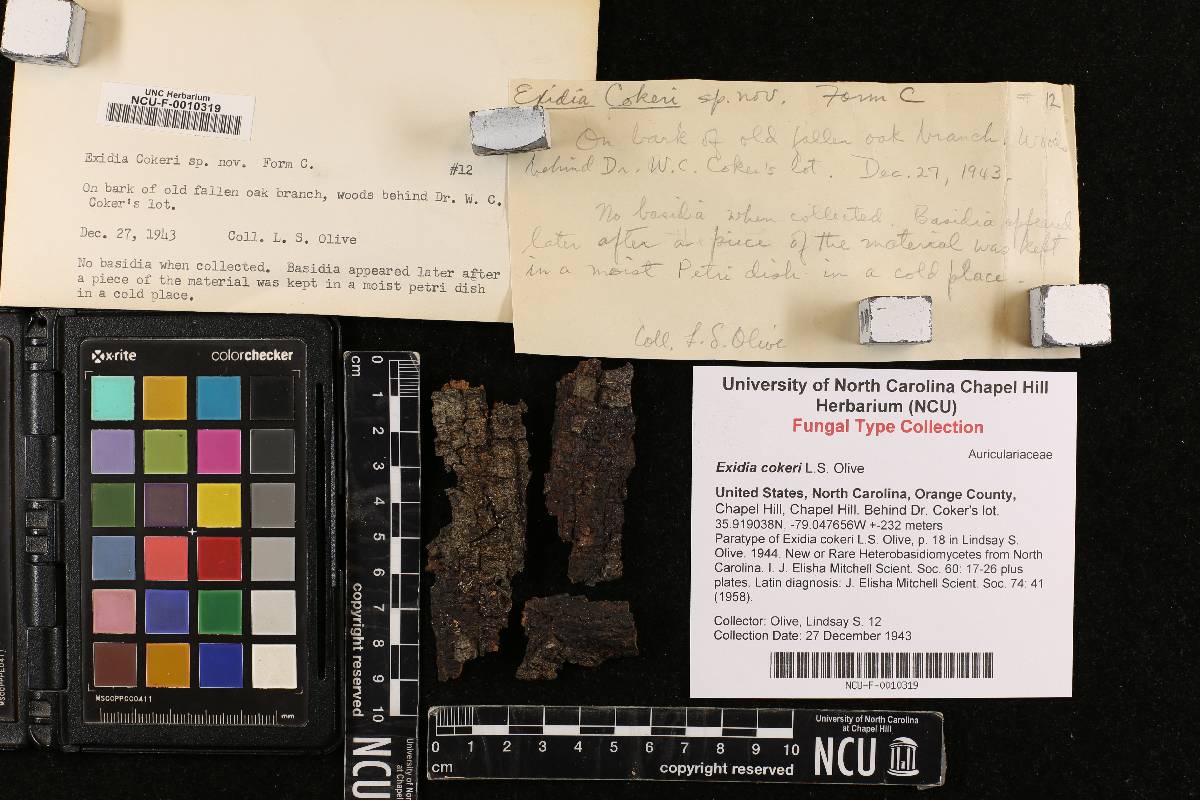 UNC Herbarium
NCU-F-0010319
Exidia Cokeri sp. nov. Form C.
#12
On bark of old fallen oak branch, woods behind Dr. W. C.
Coker's lot.
Dec. 27, 1943 Coll. L. S. Olive
No basidia when collected. Basidia appeared later after
a piece of the material was kept in a moist petri dish
in a cold place.
Exidia Cokeri sp. nov. Form C # 12
On bark of old fallen oak branch, Woods
behind Dr. W. C. Coker's lot. Dec. 27, 1943.
No basidia when collected. Basidia appeared
later after a piece of the material was kept
in a moist Petri dish in a cold place.
Coll. L. S. Olive
x-rite colorchecker
MSCCPPCC0411
mm
cm
0
1
2
3
4
5
6
7
8
9
10
copyright reserved
NCU
University of North Carolina Chapel Hill
Herbarium (NCU)
Fungal Type Collection
Auriculariaceae
Exidia cokeri L.S. Olive
United States, North Carolina, Orange County,
Chapel Hill, Chapel Hill. Behind Dr. Coker's lot.
35.919038N. -79.047656W +-232 meters
Paratype of Exidia cokeri L.S. Olive, p. 18 in Lindsay S.
Olive. 1944. New or Rare Heterobasidiomycetes from North
Carolina. I. J. Elisha Mitchell Scient. Soc. 60: 17-26 plus
plates. Latin diagnosis: J. Elisha Mitchell Scient. Soc. 74: 41
(1958).
Collector: Olive, Lindsay S. 12
Collection Date: 27 December 1943
NCU-F-0010319
0 1 2 3 4 5 6 7 8 9 10
cm
copyright reserved
University of North Carolina
at Chapel Hill
NCU